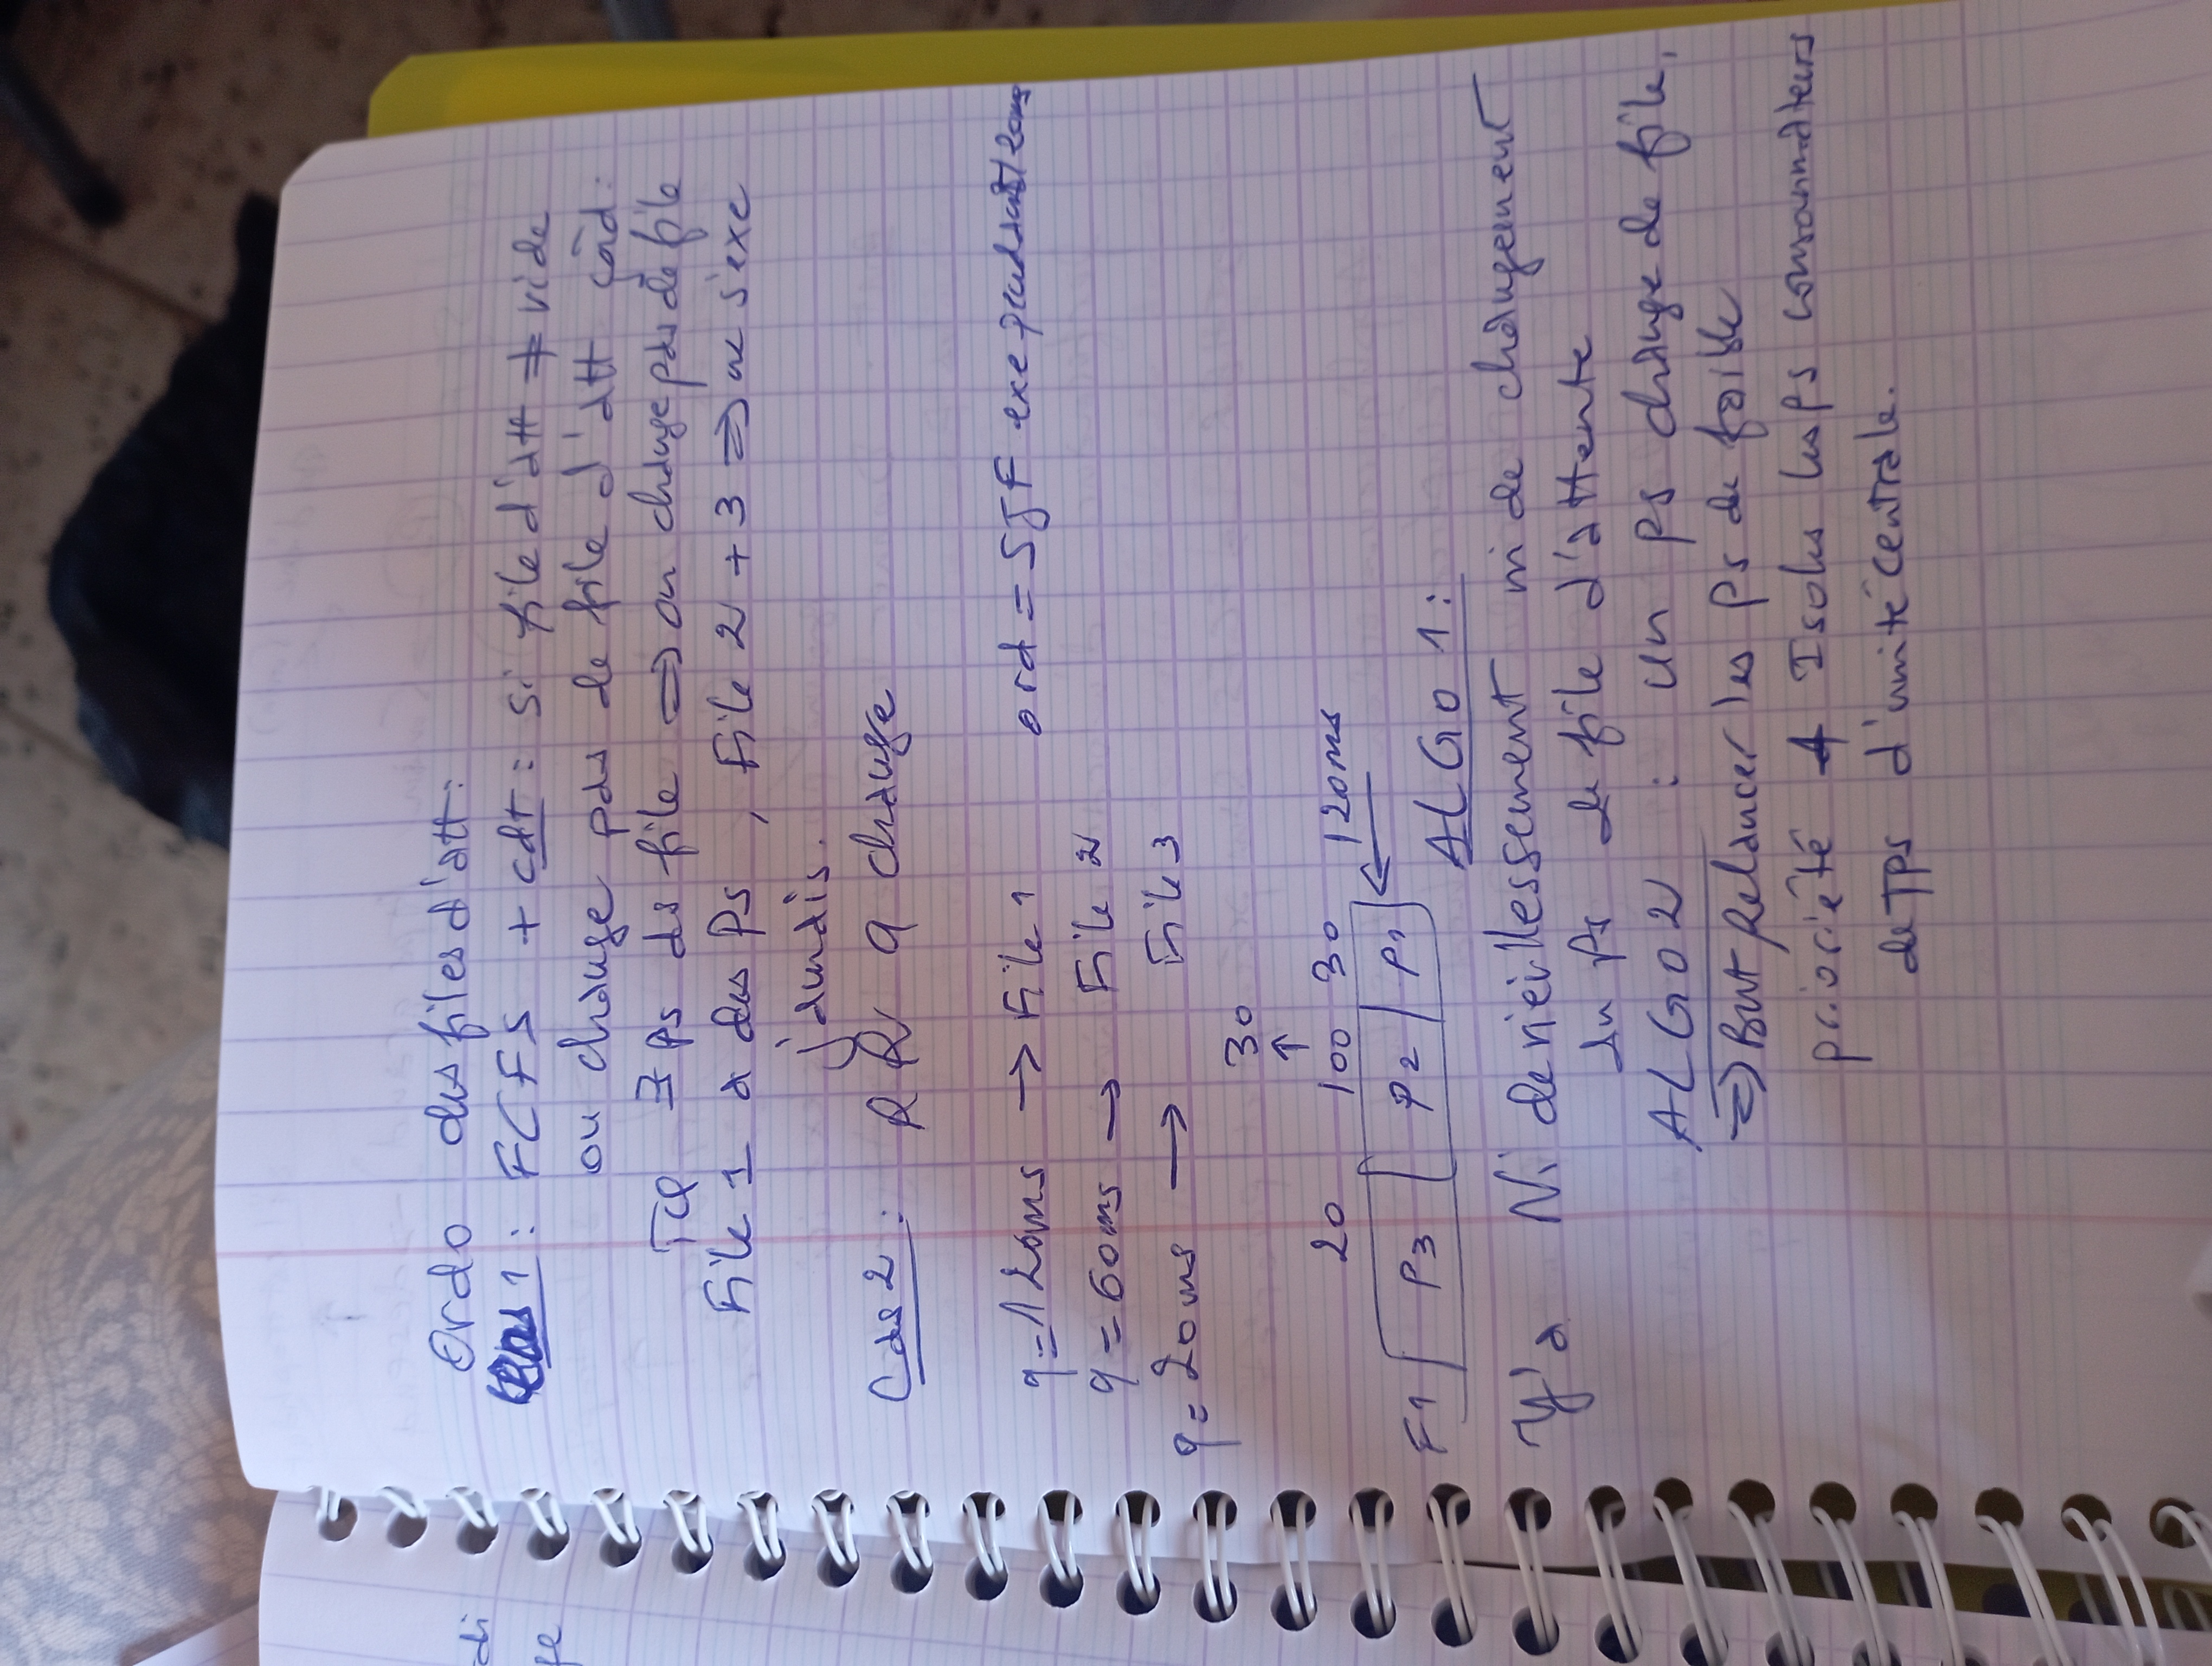 di
ge
Ordo des files d'att:
Cas 1 : FCFS + cdt : si file d'att ≠ vide
on change pas de file d'att çàd:
Tq ∃ Ps ds file ⇒ on change pas de file
File 1 a des Ps , File 2 + 3 ⇒ ne s'exe
jamais.
Cas 2 : RR q change
q = 120ms → File 1 ord = SJF exe pendant 120ms
q = 60ms → File 2
q = 20ms → File 3
30
↑
20 100 30 120ms
F1 P3 P2 P1 ←
ALGO 1 :
Y'a Ni de vieillessement ni de changement
du Ps de file d'attente
ALGO 2 : un ps change de file,
⇒ But Relancer les Ps de faible
priorièté + Isoler les Ps consommateurs
de TPS d'unité centrale.